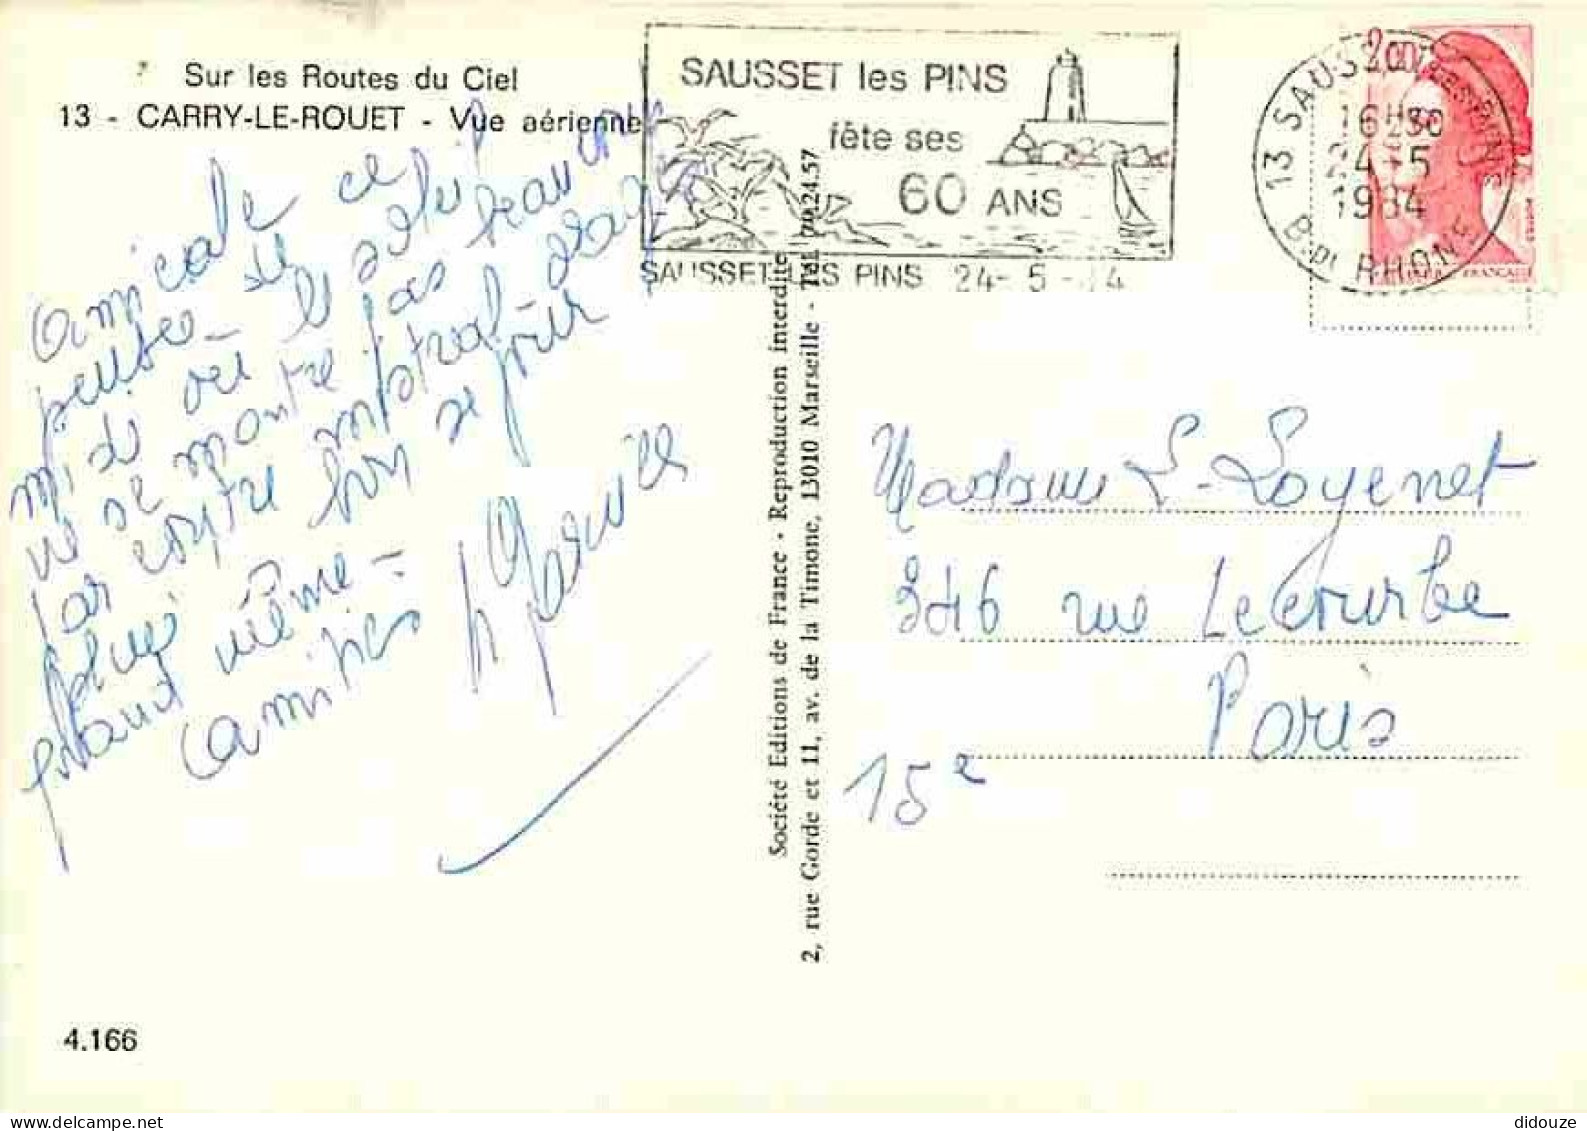 Sur les Routes du Ciel
13 - CARRY-LE-ROUET - Vue aérienne
SAUSSET les PINS
fête ses
60 ANS
SAUSSET LES PINS 24-5-84
13 SAUSSET-LES-PINS
16H30
24-5
1984
B. DU RHONE
2,00
Amicale
pensée de ce
midi où le soleil
ne se montre pas beaucoup
par contre mistral
bon séjour
quand même -
amitiés
Société Editions de France - Reproduction interdite
2, rue Gorde et 11, av. de la Timone, 13010 Marseille - Tél. 79.24.57
Madame L. Loyenet
346 rue Lecourbe
Paris
15e
4.166
didouze